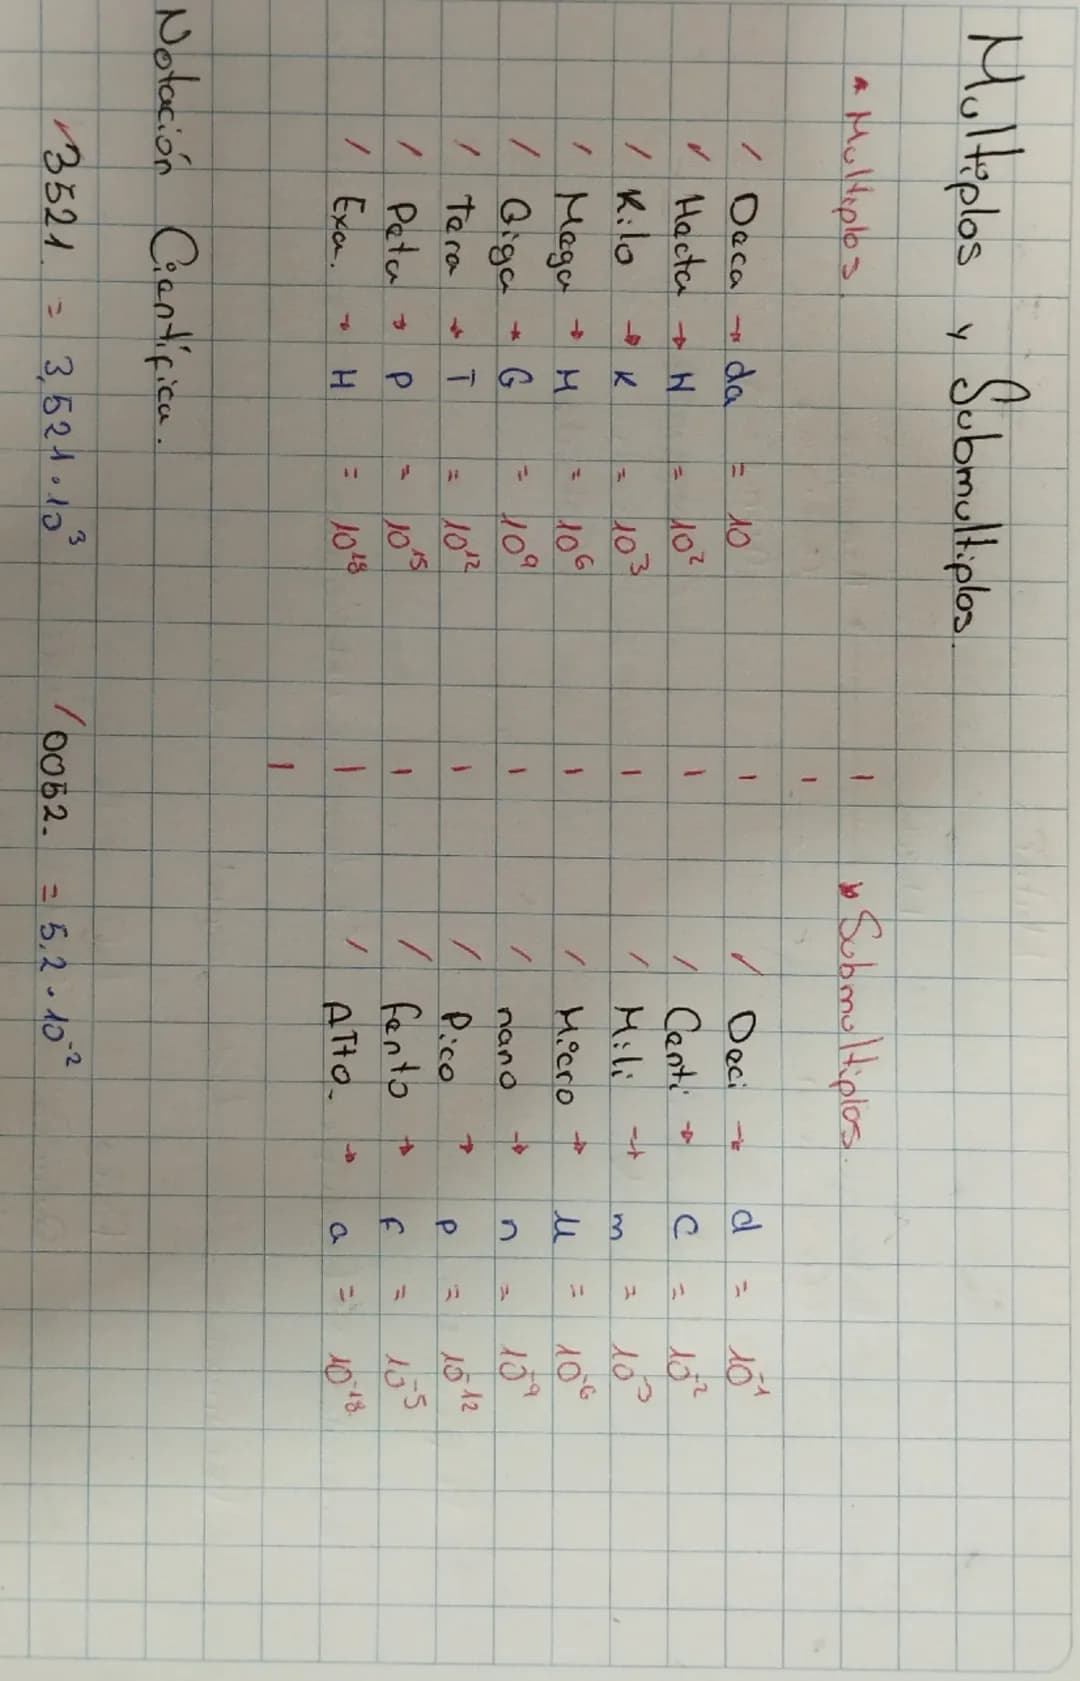 Multiplos y Submultiplos.
Multiplos.
/ Deca → da = 10
/ Hecta → H = 10²
/ Kilo → K = 10³
/ Mega → M = 10⁶
/ Giga → G = 10⁹
/ Tera → T = 10¹²
/ Peta → P = 10¹⁵
/ Exa. → H = 10¹⁸
Submultiplos.
/ Deci → d = 10⁻¹
/ Centi → C = 10⁻²
/ Mili → m = 10⁻³
/ Micro → µ = 10⁻⁶
/ nano → n = 10⁻⁹
/ Pico → p = 10⁻¹²
/ fento → F = 10⁻⁵
/ ATto. → a = 10⁻¹⁸
Notación Científica.
/3521. = 3,521·10³ /0052. = 5.2·10⁻²